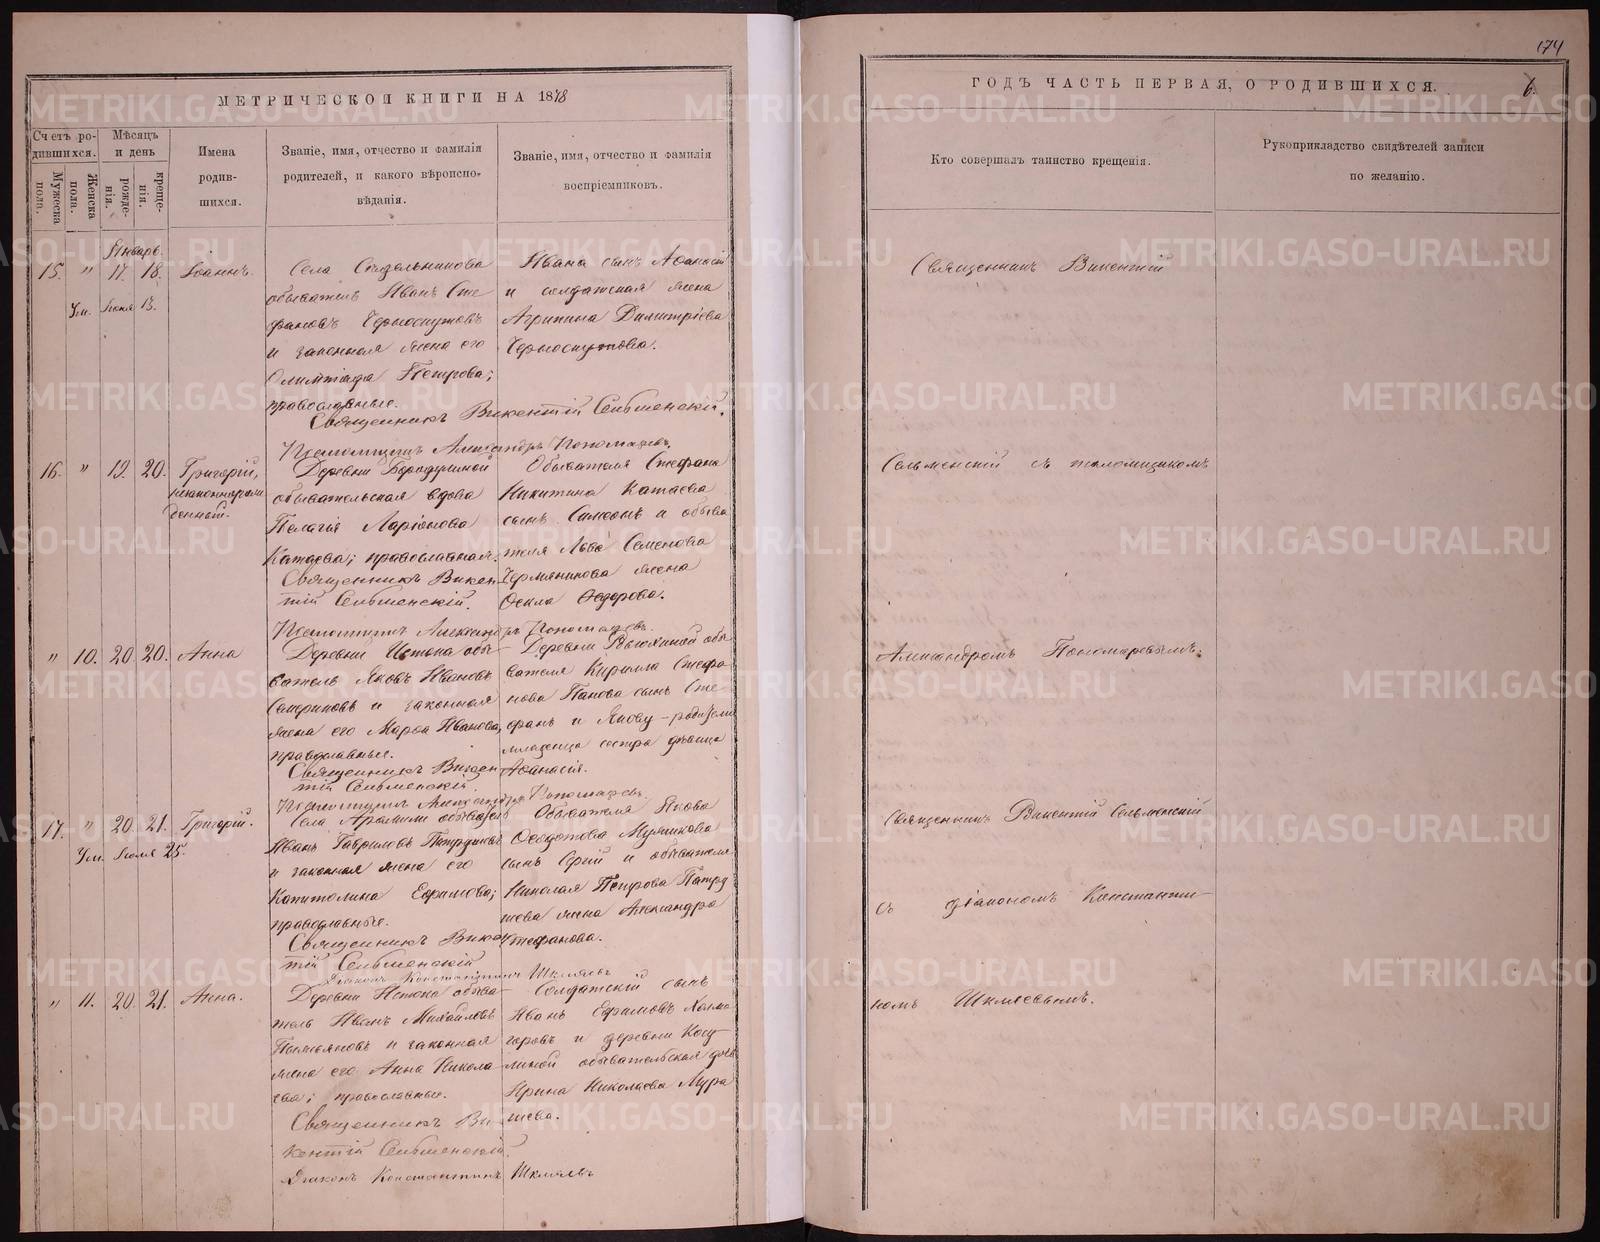 174
МЕТРИЧЕСКОЙ КНИГИ НА 1878
ГОДЪ ЧАСТЬ ПЕРВАЯ, О РОДИВШИХСЯ.
6.
Счетъ ро-
дившихся.
Мужеска
пола.
Женска
пола.
Мѣсяцъ
и день
рожде-
нія.
креще-
нія.
Имена
родив-
шихся.
Званіе, имя, отчество и фамилія
родителей, и какого вѣроиспо-
вѣданія.
Званіе, имя, отчество и фамилія
воспріемниковъ.
Кто совершалъ таинство крещенія.
Рукоприкладство свидѣтелей записи
по желанію.
Январь.
15. " 17. 18. Іоаннъ.
Ум. Іюля 13.
Села
обыватель Иванъ Сте
фановъ Черноскутовъ
и законная жена его
Олимпіада Петрова;
православные.
Священникъ Викентій Сельменскій.
Псаломщикъ Александръ Пономаревъ.
Ивана сынъ Афанасій
и солдатская жена
Агрипина Димитріева
Черноскутова.
Священникъ Викентій
16. " 19. 20. Григорій,
незаконнорож
денный.
Деревни
обывательская вдова
Пелагія Ларіонова
Катаева; православная.
Священникъ Викен
тій Сельменскій.
Псаломщикъ Александръ Пономаревъ.
Обывателя Стефана
Никитина Катаева
сынъ Симеонъ и обыва
теля Льва Семенова
Чермяникова жена
Фекла Федорова.
Сельменскій съ псаломщикомъ
" 10. 20 20. Анна
Деревни Истока обы
ватель Яковъ Ивановъ
и законная
жена его Марѳа Иванова,
православные.
Священникъ Викен
тій Сельменскій.
Псаломщикъ Александръ Пономаревъ.
Деревни обы
вателя Кирилла Стефа
нова Панова сынъ Сте
фанъ и Якову - родителю
младенца сестра дѣвица
Афанасія.
Александромъ Пономаревымъ.
17. " 20. 21. Григорій.
Ум. Іюля 25.
Села Арамили обыватель
Иванъ Гавриловъ Патрушевъ
и законная жена его
Капитолина Ефимова;
православные.
Священникъ Викен
тій Сельменскій
Діаконъ Константинъ Шкляевъ
Обывателя Якова
Федотова
сынъ и обывателя
Николая Петрова Патру
шева жена Александра
Стефанова.
Священникъ Викентій Сельменскій
съ діакономъ Константи
" 11. 20. 21. Анна.
Деревни Истока обыва
тель Иванъ Михайловъ
и законная
жена его Анна Никола
ева; православные.
Священникъ Ви
кентій Сельменскій.
Діаконъ Константинъ Шкляевъ
Солдатскій сынъ
Иванъ Ефимовъ Холмо
горовъ и деревни Косу
линой обывательская дочь
Ирина Николаева Мура
шева.
номъ Шкляевымъ.
METRIKI.GASO-URAL.RU